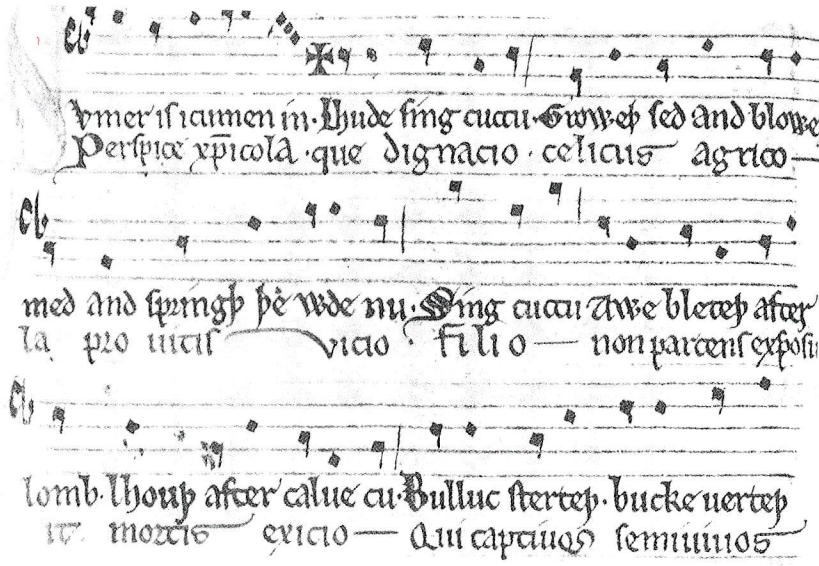 vmer is icumen in · Lhude sing cuccu · Groweþ sed and blowe
Perspice xp̄icola · que dignacio · celicus agrico
med and springþ þe wde nu · Sing cuccu Awe bleteþ after
la pro uitis vicio · filio non parcens exposu
lomb · lhouþ after calue cu · Bulluc sterteþ · bucke uerteþ
it mortis exicio Qui captiuos semiuiuos